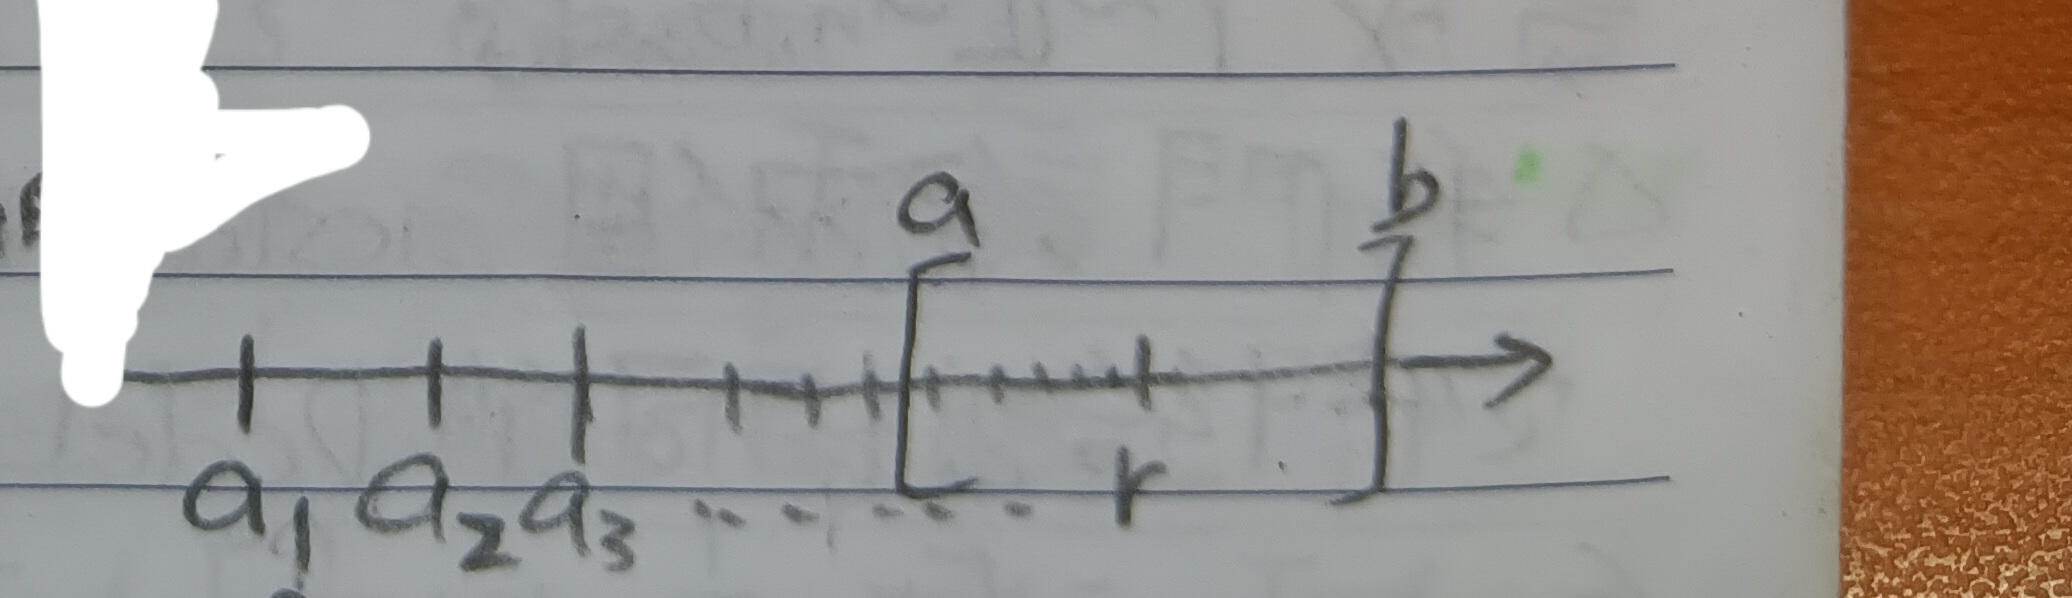 a b
a₁ a₂ a₃ ..... r